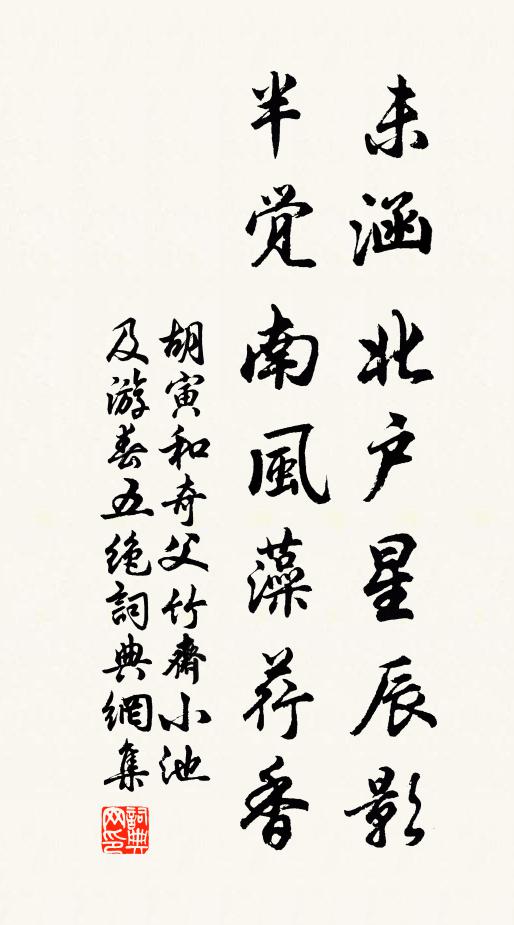 未涵北户星辰影
半覚南風藻荇香
胡寅和奇父竹齋小池
及游春五绝詞典網集
詞典
网印